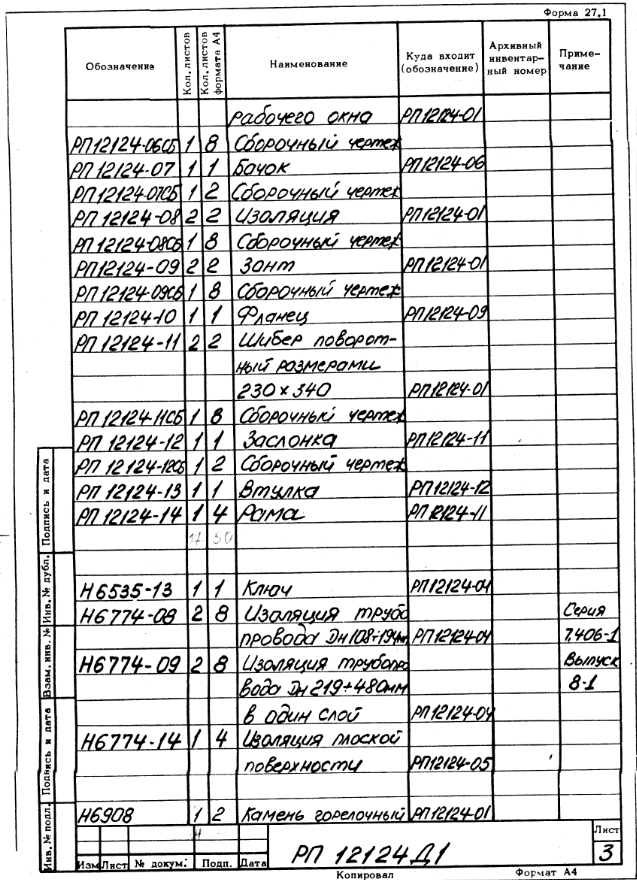 Форма 27.1
Обозначение Кол. листов Кол. листов формата А4 Наименование Куда входит (обозначение) Архивный инвентар-ный номер Приме-чание
рабочего окна РП12124-01
РП12124-06СБ 1 8 Сборочный чертеж
РП12124-07 1 1 Бачок РП12124-06
РП12124-07СБ 1 2 Сборочный чертеж
РП12124-08 2 2 Изоляция РП12124-01
РП12124-08СБ 1 8 Сборочный чертеж
РП12124-09 2 2 Зонт РП12124-01
РП12124-09СБ 1 8 Сборочный чертеж
РП12124-10 1 1 Фланец РП12124-09
РП12124-11 2 2 Шибер поворот-
ный размерами
230×340 РП12124-01
РП12124-11СБ 1 8 Сборочный чертеж
РП12124-12 1 1 Заслонка РП12124-11
РП12124-12СБ 1 2 Сборочный чертеж
РП12124-13 1 1 Втулка РП12124-12
РП12124-14 1 4 Рама РП12124-11
17 50
Н6535-13 1 1 Ключ РП12124-04
Н6774-08 2 8 Изоляция трубо Серия
провода Dн108÷194мм РП12124-04 7.406-1
Н6774-09 2 8 Изоляция трубопро Выпуск
вода Dн219÷480мм 8-1
в один слой РП12124-04
Н6774-14 1 4 Изоляция плоской
поверхности РП12124-05
Н6908 1 2 Камень горелочный РП12124-01
4
Изм Лист № докум. Подп. Дата
РП 12124Д1
Лист
3
Копировал Формат А4
Подпись и дата
Инв. № дубл.
Взам. инв. №
Подпись и дата
Инв. № подл.